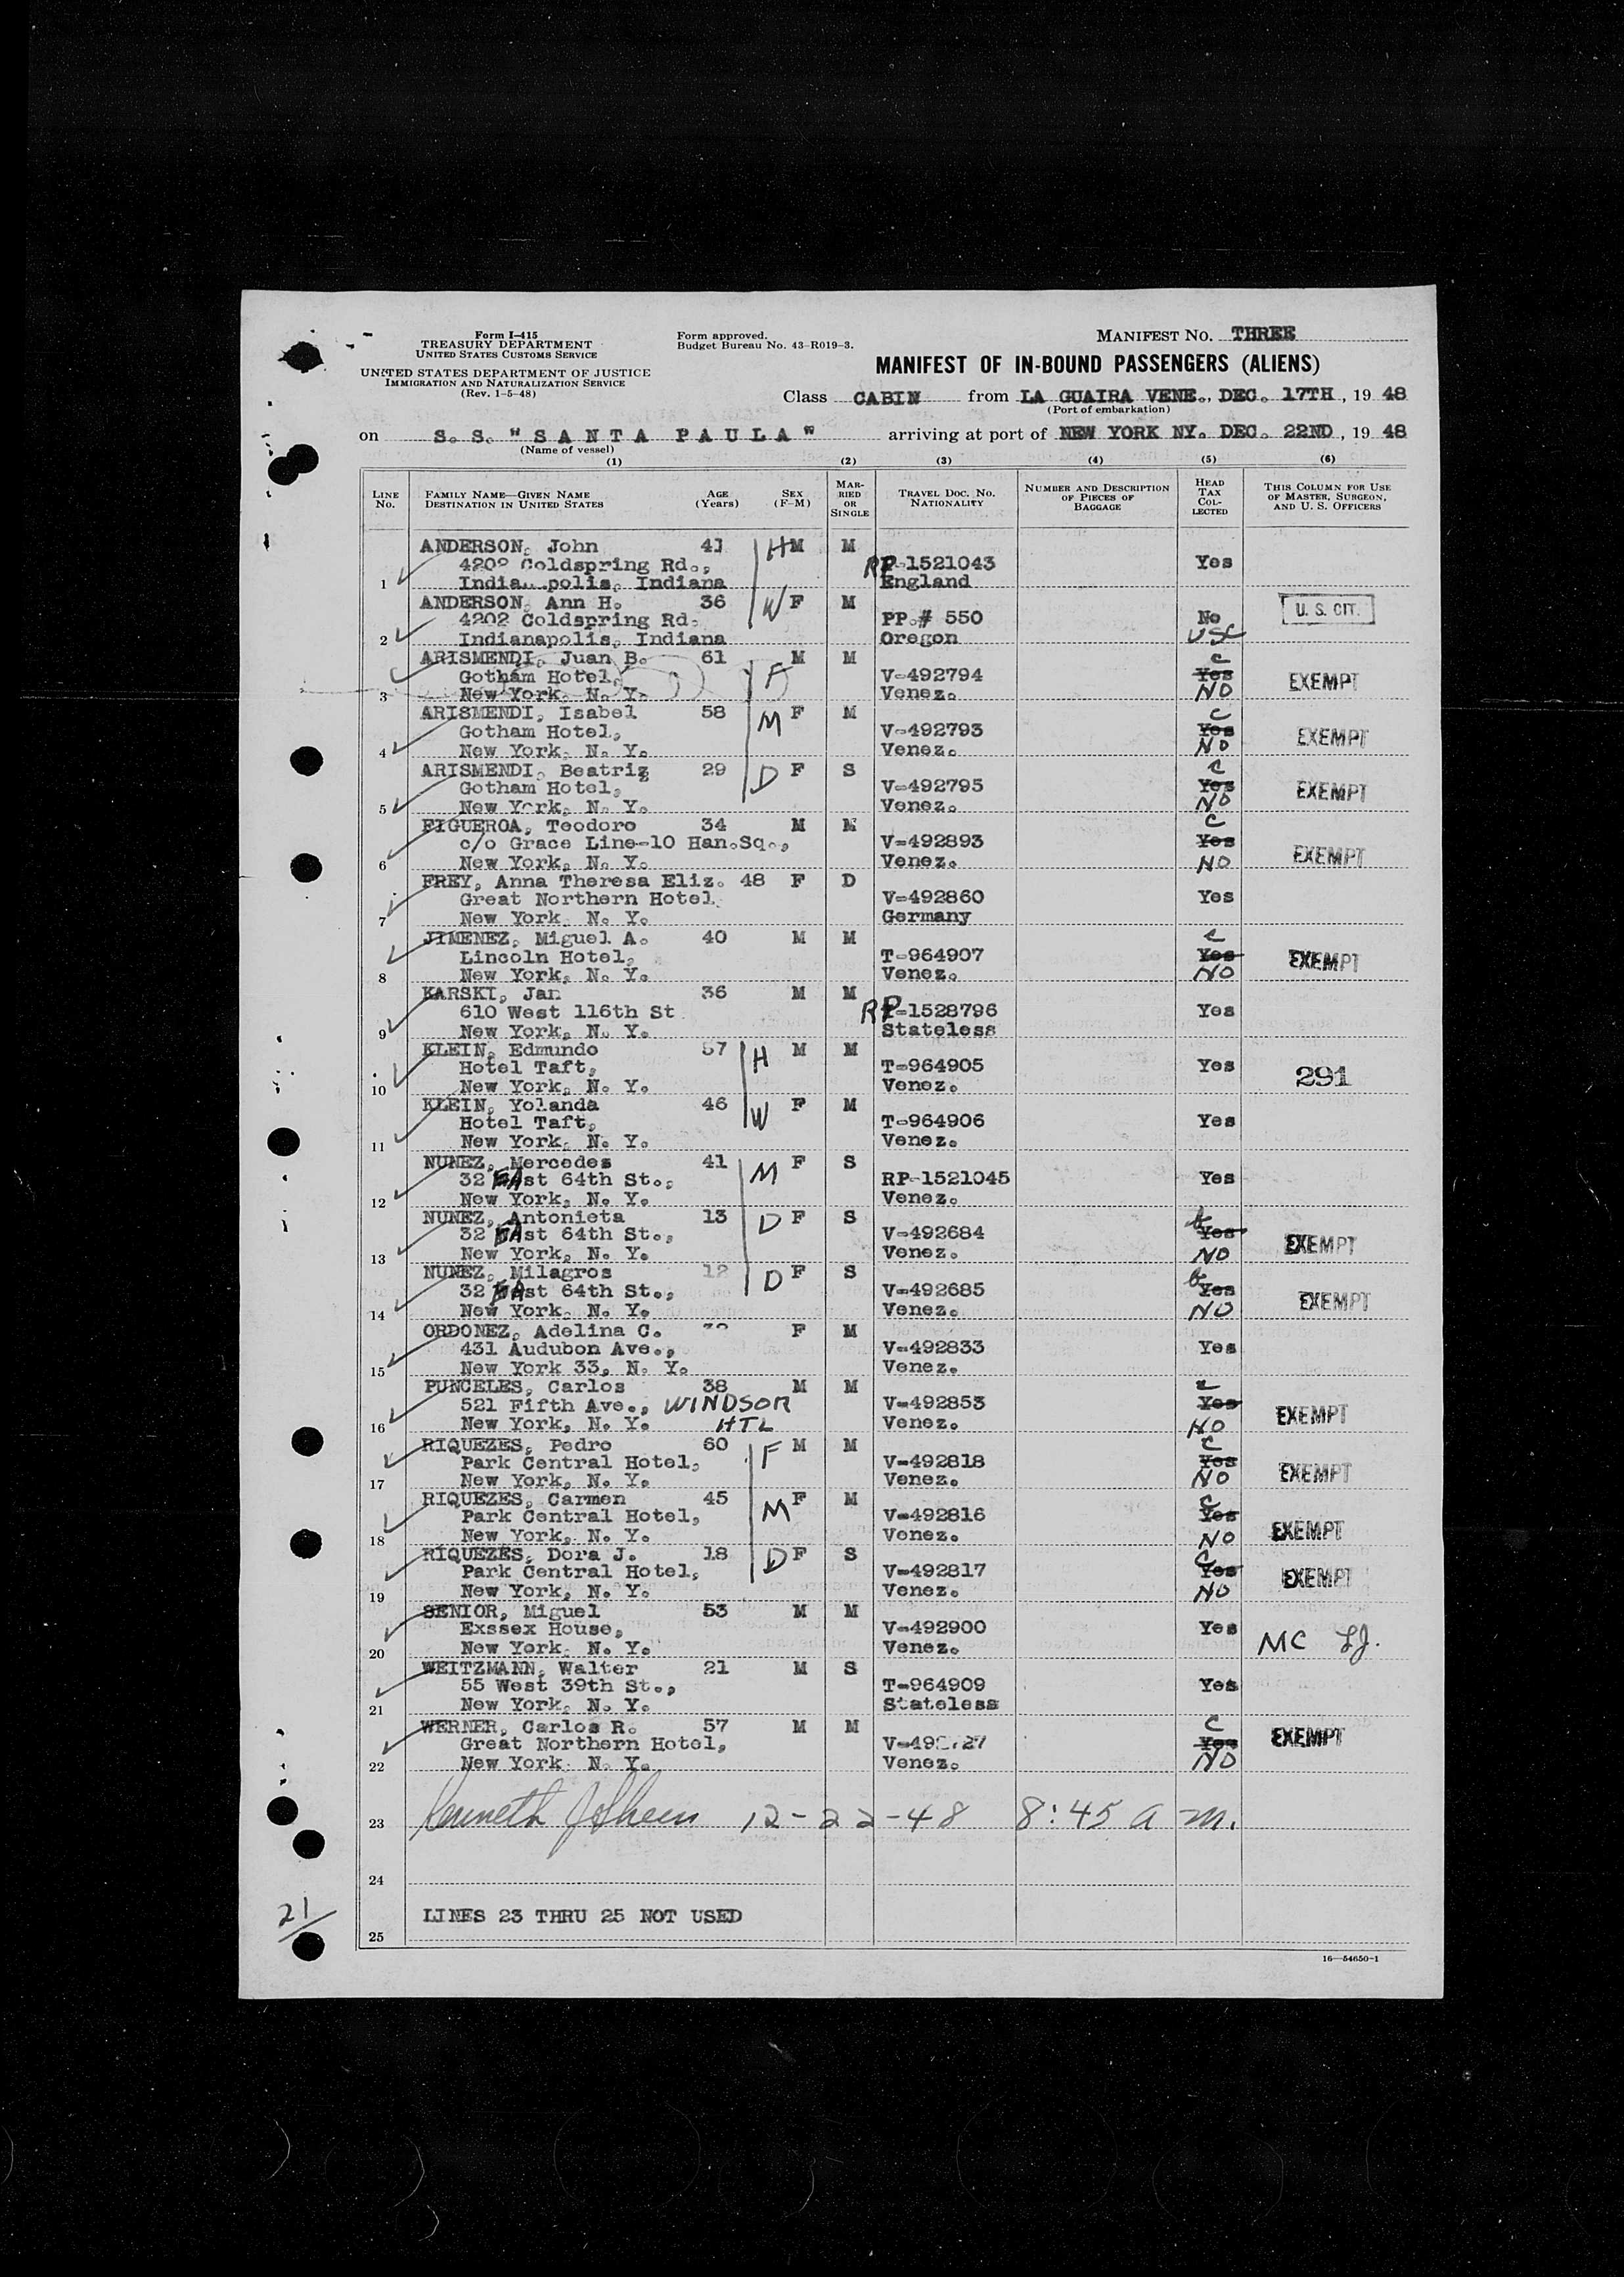 Form I-415
TREASURY DEPARTMENT
UNITED STATES CUSTOMS SERVICE
UNITED STATES DEPARTMENT OF JUSTICE
IMMIGRATION AND NATURALIZATION SERVICE
(Rev. 1-5-48)
Form approved.
Budget Bureau No. 43-R019-3.
MANIFEST NO. THREE
MANIFEST OF IN-BOUND PASSENGERS (ALIENS)
Class CABIN from LA GUAIRA VENE., DEC. 17TH, 1948
(Port of embarkation)
on S. S. "SANTA PAULA" arriving at port of NEW YORK NY. DEC. 22ND, 1948
(Name of vessel)
(1) (2) (3) (4) (5) (6)
LINE No. FAMILY NAME—GIVEN NAME DESTINATION IN UNITED STATES AGE (Years) SEX (F-M) MARRIED OR SINGLE TRAVEL DOC. NO. NATIONALITY NUMBER AND DESCRIPTION OF PIECES OF BAGGAGE HEAD TAX COLLECTED THIS COLUMN FOR USE OF MASTER, SURGEON, AND U. S. OFFICERS
ANDERSON, John 41 H M M
4202 Coldspring Rd., RP-1521043 Yes
1 Indianapolis, Indiana England
ANDERSON, Ann H. 36 W F M
4202 Coldspring Rd. PP.# 550 No U. S. CIT.
2 Indianapolis, Indiana Oregon USC
ARISMENDI, Juan B. 61 F M M C
Gotham Hotel, V-492794 Yes EXEMPT
3 New York, N. Y. Venez. NO
ARISMENDI, Isabel 58 M F M C
Gotham Hotel, V-492793 Yes EXEMPT
4 New York, N. Y. Venez. NO
ARISMENDI, Beatriz 29 D F S C
Gotham Hotel, V-492795 Yes EXEMPT
5 New York, N. Y. Venez. NO
FIGUEROA, Teodoro 34 M M C
c/o Grace Line-10 Han.Sq., V-492893 Yes EXEMPT
6 New York, N. Y. Venez. NO
FREY, Anna Theresa Eliz. 48 F D
Great Northern Hotel V-492860 Yes
7 New York N. Y. Germany
JIMENEZ, Miguel A. 40 M M C
Lincoln Hotel, T-964907 Yes EXEMPT
8 New York, N. Y. Venez. NO
KARSKI, Jan 36 M M
610 West 116th St RP-1528796 Yes
9 New York, N. Y. Stateless
KLEIN, Edmundo 57 H M M
Hotel Taft, T-964905 Yes 291
10 New York, N. Y. Venez.
KLEIN, Yolanda 46 W F M
Hotel Taft, T-964906 Yes
11 New York, N. Y. Venez.
NUNEZ, Mercedes 41 M F S
32 EAst 64th St., RP-1521045 Yes
12 New York, N. Y. Venez.
NUNEZ, Antonieta 13 D F S b
32 EAst 64th St., V-492684 Yes EXEMPT
13 New York, N. Y. Venez. NO
NUNEZ, Milagros 12 D F S b
32 EAst 64th St., V-492685 Yes EXEMPT
14 New York, N. Y. Venez. NO
ORDONEZ, Adelina C. F M
431 Audubon Ave., V-492833 Yes
15 New York 33, N. Y. Venez.
PUNCELES, Carlos 38 M M C
521 Fifth Ave., WINDSOR V-492853 Yes EXEMPT
16 New York, N. Y. HTL Venez. NO
RIQUEZES, Pedro 60 F M M C
Park Central Hotel, V-492818 Yes EXEMPT
17 New York, N. Y. Venez. NO
RIQUEZES, Carmen 45 M F M C
Park Central Hotel, V-492816 Yes EXEMPT
18 New York, N. Y. Venez. NO
RIQUEZES, Dora J. 18 D F S C
Park Central Hotel, V-492817 Yes EXEMPT
19 New York, N. Y. Venez. NO
SENIOR, Miguel 53 M M
Exssex House, V-492900 Yes MC
20 New York, N. Y. Venez.
WEITZMANN, Walter 21 M S
55 West 39th St., T-964909 Yes
21 New York, N. Y. Stateless
WERNER, Carlos R. 57 M M C
Great Northern Hotel, Yes EXEMPT
22 New York N. Y. Venez. NO
23 Kenneth 12-22-48 8:45 a m.
24
LINES 23 THRU 25 NOT USED
25
21
16—54650-1